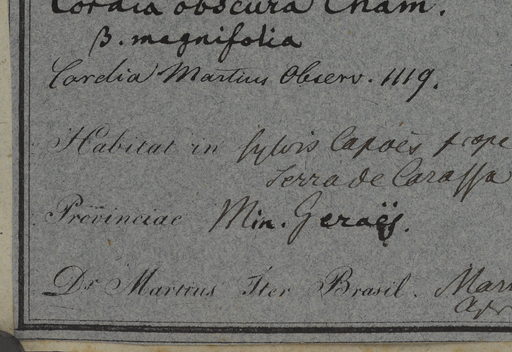 Cordia obscura Cham.
β. magnifolia
Cordia Martius Observ. 1119.
Habitat in sylvis Capoës prope
Serra de Carassa
Provinciae Min. Geraës.
Dr Martius Iter Brasil.